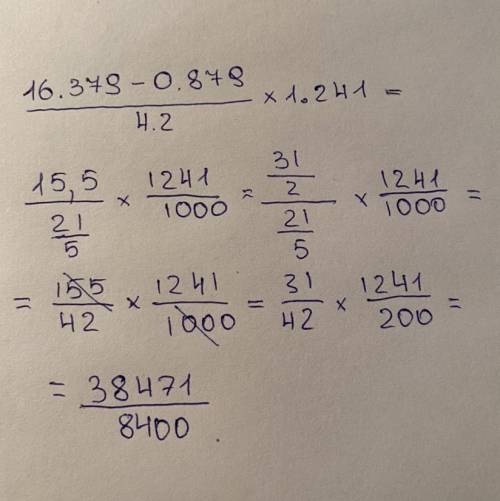 (16.379 − 0.879)/4.2 × 1.241 =
15,5/(21/5) × 1241/1000 = (31/2)/(21/5) × 1241/1000 =
= 155/42 × 1241/1000 = 31/42 × 1241/200 =
= 38471/8400